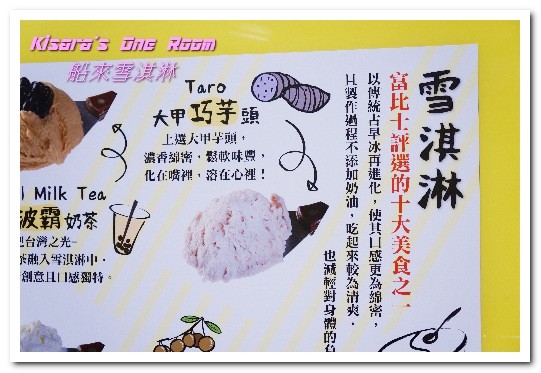 Kisara's One Room
船來雪淇淋
雪淇淋
富比士評選的十大美食之一
以傳統古早冰再進化，使其口感更為綿密，
且製作過程不添加奶油，吃起來較為清爽，
也減輕對身體的負
Taro
大甲巧芋頭
上選大甲芋頭，
濃香綿密，鬆軟味豐，
化在嘴裡，溶在心裡！
Milk Tea
波霸奶茶
把台灣之光-
茶融入雪淇淋中，
創意且口感獨特。